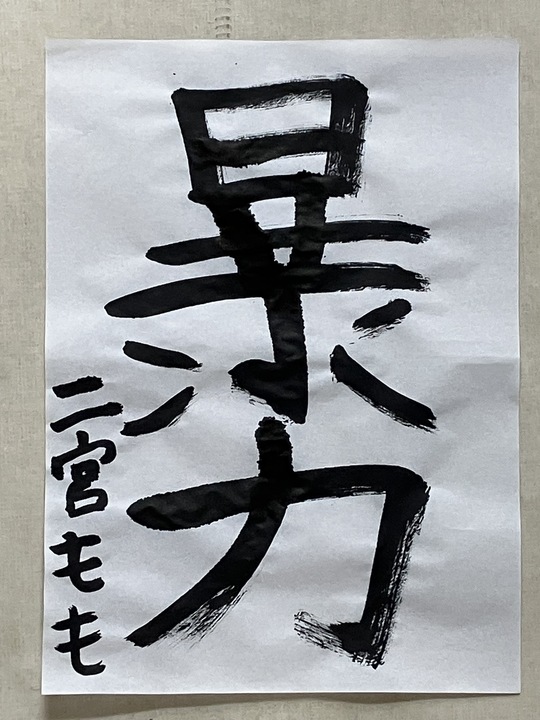 暴力
二宮もも